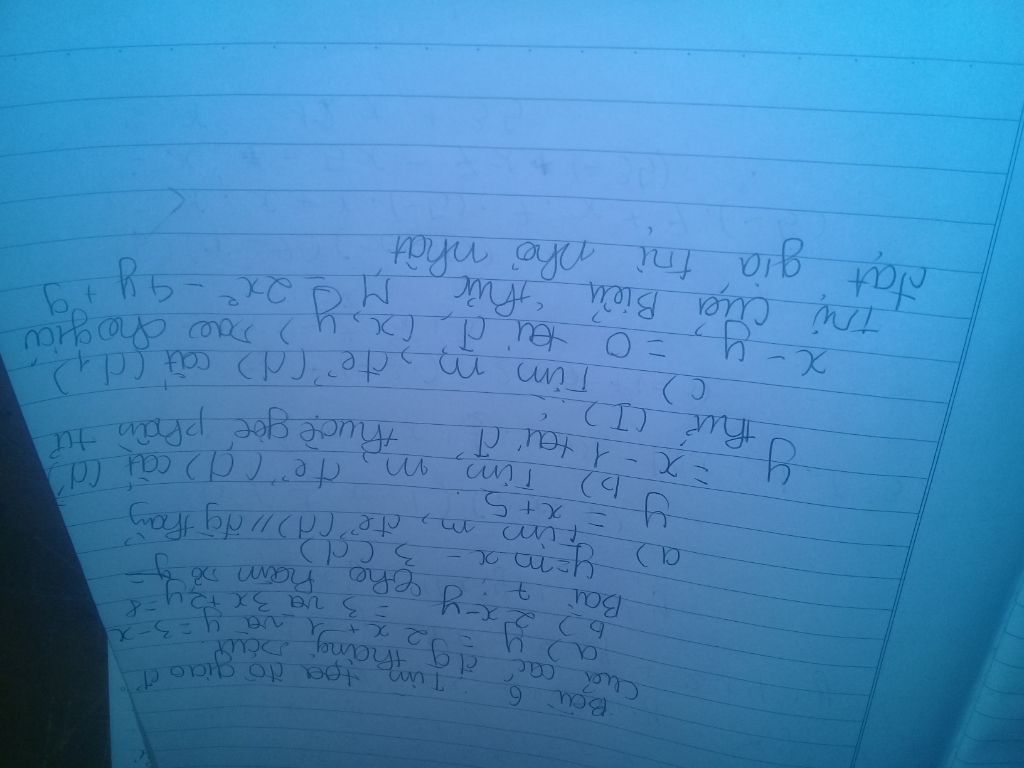 Bài 6 Tìm tọa độ giao đ'
Của các đg thẳng sau
a) y = 2x + 1 và y = 3 - x
b) 2x - y = 3 và 3x + 2y = 8
Bài 7: Cho hàm số y =
y = mx - 3 (d)
a) tìm m, để (d) // đg thẳng
y = x + 5.
b) Tìm m, để (d) cắt (d')
y = x - 1 tại đ' thuộc góc phần tư
thứ (I).
c) Tìm m, để (d) cắt (d1)
x - y = 0 tại đ' (x, y) sao cho giá
trị của Biểu thức M = 2x² - 4y + 9
đạt giá trị nhỏ nhất